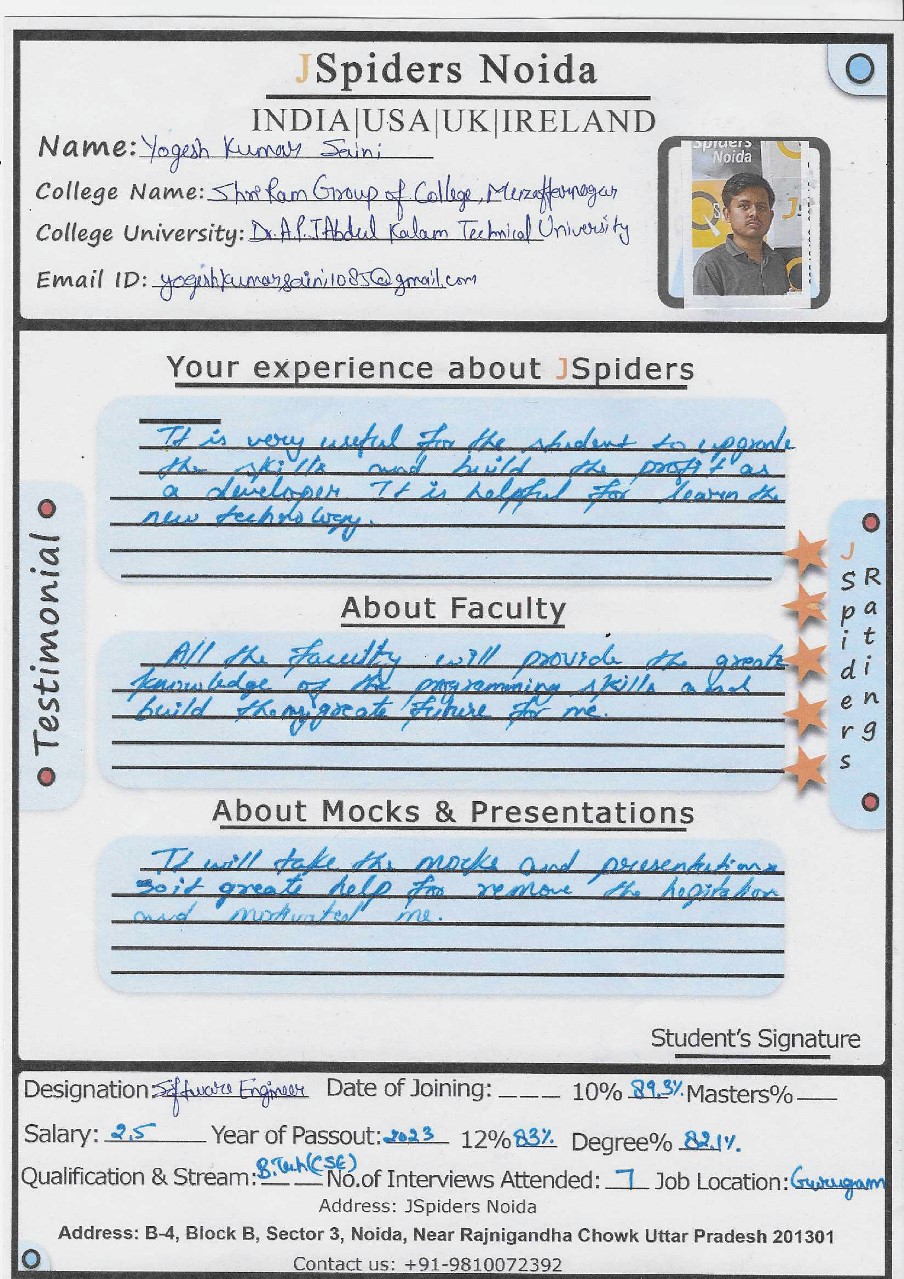 JSpiders Noida
INDIA|USA|UK|IRELAND
Name: Yogesh Kumar Saini
College Name: Shri Ram Group of College, Muzaffarnagar
College University: Dr. A.P.J Abdul Kalam Technical University
Email ID: yogeshkumarsaini1085@gmail.com
Spiders
Noida
Your experience about JSpiders
It is very useful for the student to upgrade
the skills and build the profit as
a developer. It is helpful for learn the
new technology.
About Faculty
All the faculty will provide the greate
knowledge of the programming skills and
build the greate future for me.
About Mocks & Presentations
It will take the mocks and presentations
so it greate help for remove the hegitation
and motivated me.
Testimonial
JSpiders
Ratings
Student's Signature
Designation: Software Engineer Date of Joining: ___ 10% 89.3% Masters% __
Salary: 2.5 Year of Passout: 2023 12% 83% Degree% 82.1%
Qualification & Stream: B.Tech (CSE) No.of Interviews Attended: 7 Job Location: Gurugam
Address: JSpiders Noida
Address: B-4, Block B, Sector 3, Noida, Near Rajnigandha Chowk Uttar Pradesh 201301
Contact us: +91-9810072392